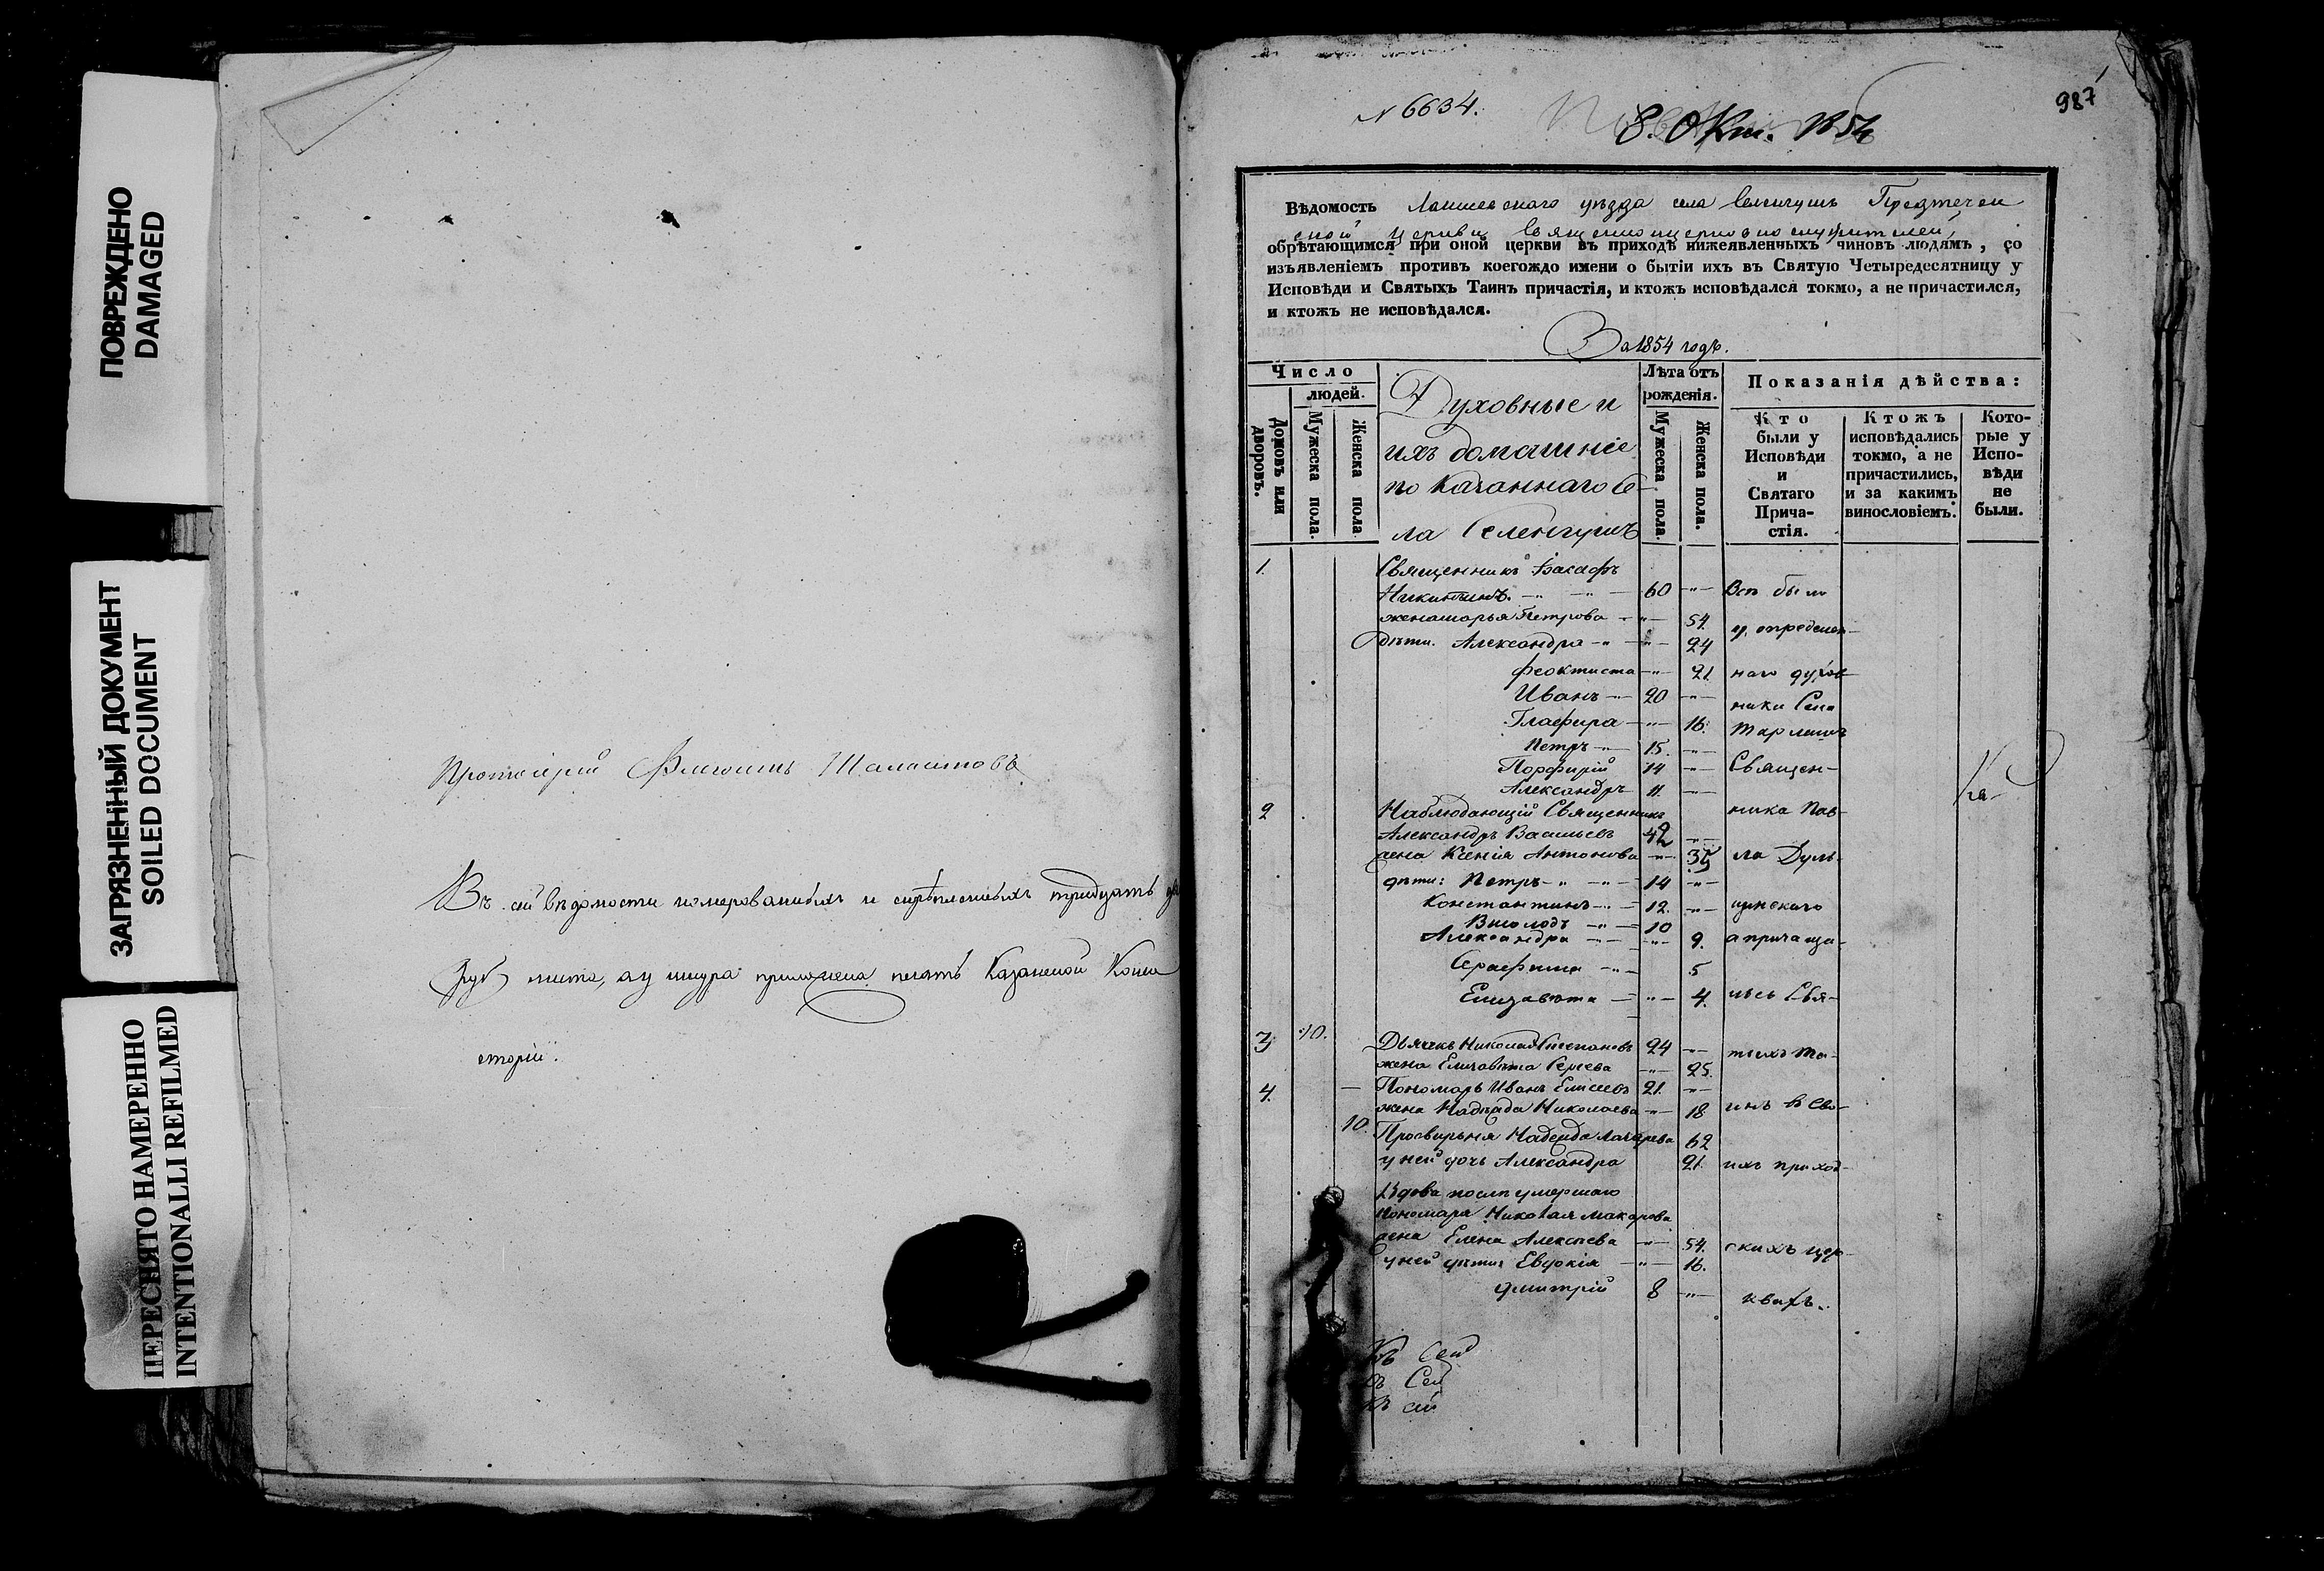 ПОВРЕЖДЕНО
DAMAGED
ЗАГРЯЗНЕННЫЙ ДОКУМЕНТ
SOILED DOCUMENT
ПЕРЕСНЯТО НАМЕРЕННО
INTENTIONALLI REFILMED
Протоіерей
Въ сей вѣдомости номерованныхъ и скрѣпленныхъ тридцать
листа, а у шнура приложена печать Казанской Конси
сторіи.
987
N 6634.
8. Окт. 1854
Вѣдомость Лаишевскаго уѣзда села Селенгушъ Предтечен
ской церкви Священноцерковнослужителей,
обрѣтающимся при оной церкви въ приходѣ нижеявленныхъ чиновъ людямъ, со
изъявленіемъ противъ коегождо имени о бытіи ихъ въ Святую Четыредесятницу у
Исповѣди и Святыхъ Таинъ причастія, и ктожъ исповѣдался токмо, а не причастился,
и ктожъ не исповѣдался.
За 1854 годъ.
Число
людей.
Домовъ или дворовъ.
Мужеска пола.
Женска пола
Духовные и
ихъ домашніе
по казаннаго Се-
ла Селенгушъ
Лѣта отъ
рожденія.
Мужеска пола.
Женска пола.
Показанія дѣйства:
Кто
были у
Исповѣди
и
Святаго
Прича-
стія.
Ктожъ
исповѣдались
токмо, а не
причастились,
и за какимъ
винословіемъ.
Кото-
рые у
Испо-
вѣди
не
были.
1. Священникъ Іасафъ
Никитинъ. 60 Всѣ были
жена Марья Петрова 54.
дѣти. Александра 24 у опредѣлен-
Феоктиста 21. наго духов-
Иванъ 20 ника Села
Глафира 16.
Петръ 15.
Порфирій 14 Священ-
Александръ 11.
2 Наблюдающій Священникъ ника Пав-
Александръ Васильевъ 42
жена Ксенія Антонова 35 ла Дуль-
дѣти: Петръ 14
Константинъ 12. цинскаго
Всеволодъ 10
Александра 9. а причаща-
Серафима 5
Елизавета 4. лись Свя-
3. 10. Дьячекъ Николай Степановъ 24 тыхъ Та-
жена Елизавета Сергева 25.
4. Пономарь Иванъ Елисеевъ 21.
жена Надѣжда Николаева 18 инъ въ Сво-
10. Просвирьня Надежда Лазарева 62
у ней дочь Александра 21. ихъ приход-
Вдова послѣ умершаго
пономаря Николая Макарова
жена Елена Алексѣева 54. скихъ цер-
у ней дѣти Евдокія 16.
Дмитрій 8 квахъ.
Къ сей
Къ сей
Къ сей